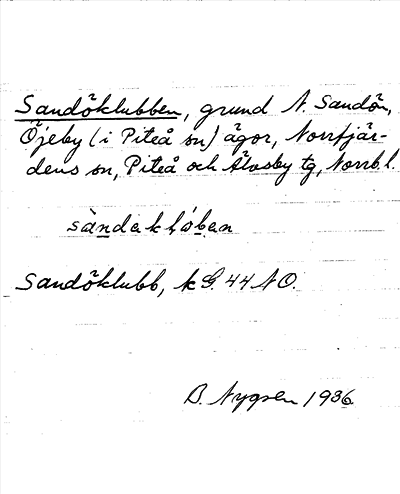 Sandöklubben, grund N. Sandön,
Öjeby (i Piteå sn) ägor, Norrfjär-
dens sn, Piteå och Älvsby tg, Norrb. l.
sàndəkløbən
Sandöklubb, k G. 44 NO.
B. Nygren 1936